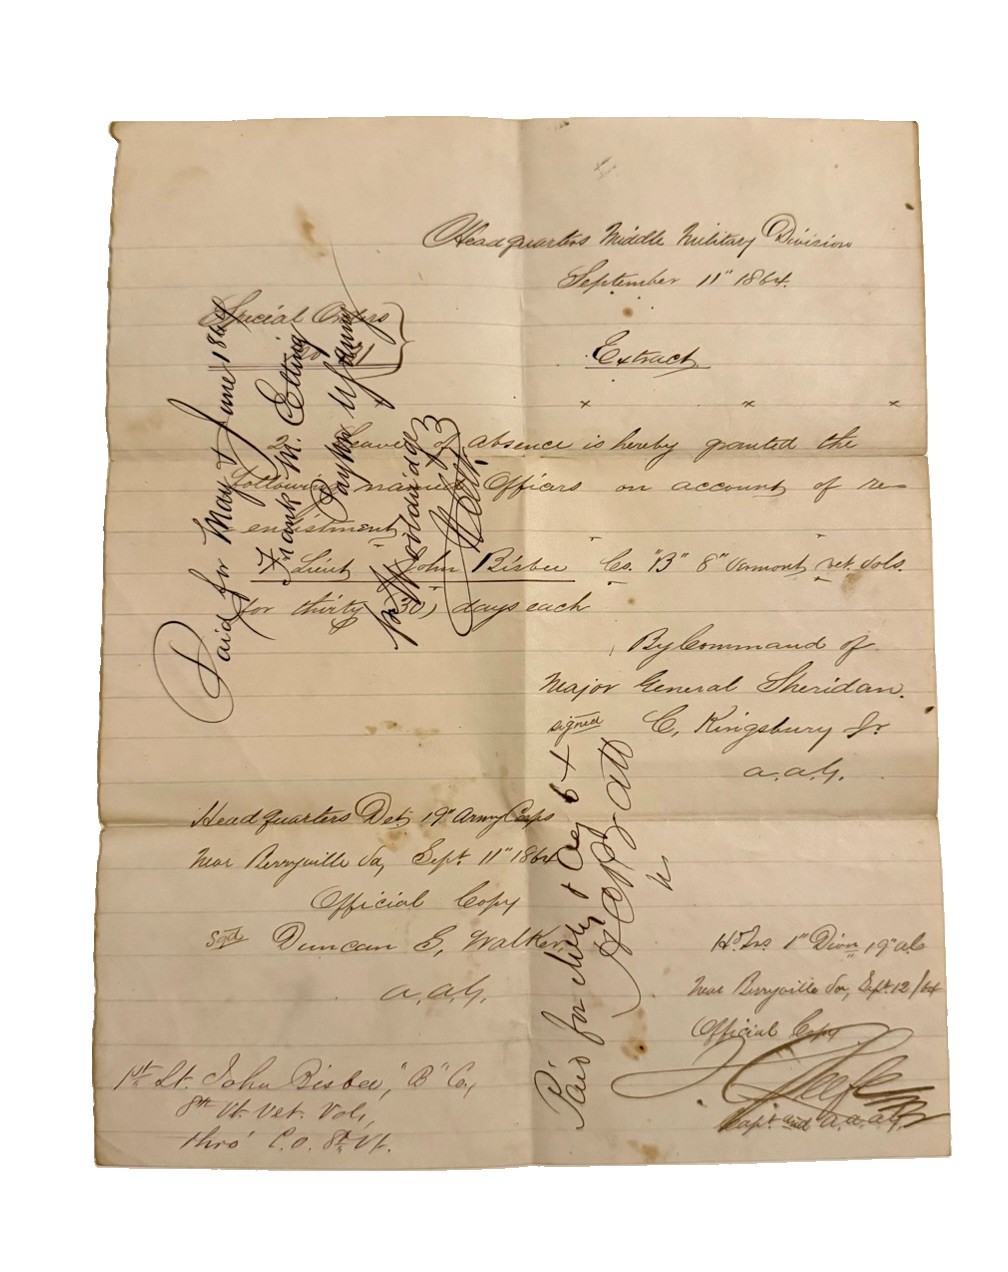 Headquarters Middle Military Division
September 11" 1864.
Special Orders
No
Extract
x x x
2 Leave of absence is hereby granted the
following named Officers on account of re-
enlistment
1 Lieut John Bisbee Co. "B" 8" Vermont vet. vols.
for thirty (30) days each
By Command of
Major General Sheridan.
signed C, Kingsbury Jr
a.a.G.
Headquarters Det 19" Army Corps
Near Berryville Va, Sept 11" 1864
Official Copy
Sgd Duncan S, Walker,
a.a.G.
Hd Qrs 1" Divn 19" a.C
Near Berryville Va, Sept. 12/64
Official Copy
Capt and a.a.a.G.
1st Lt. John Bisbee, "B" Co,
8th Vt. Vet. Vol,
thro' C.O. 8th Vt.
Paid for May & June 1864
Frank M. Etting
Paymr U.S. Army
Paid for July & Aug 64